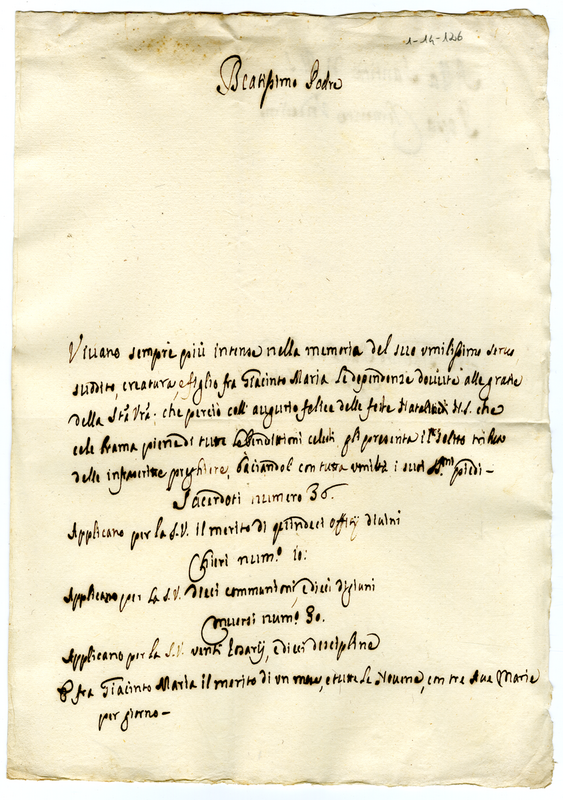 1-14-126
Beatissimo Padre
Viuano sempre più intense nella memoria del suo vmilissimo seruo
suddito, creatura, e figlio fra Giacinto Maria le dependenze douute alle grazie
della Stà Vrà: che perciò coll' augurio felice delle feste Natalizie di N.S. che
cele brama piene di tutte le benedittioni celesti, gli presenta il solito tributo
delle infrascritte preghiere, baciandol con tutta vmiltà i suoi SS.mi piedi -
Sacerdoti numero 36.
Applicano per la S.V. il merito di quindeci offitij diuini
Chieri num.º 10:
Applicano per La S.V. dieci communioni, e dieci digiuni
Conuersi num.º 30.
Applicano per la S.V. venti Rosarij, e dieci discipline
E fra Giacinto Maria il merito di un mese, e tutte le Nouene, con tre Aue Maria
per giorno -